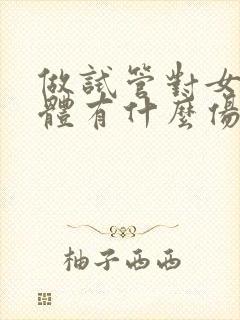 做試管對女
體有什麼傷
柚子西西